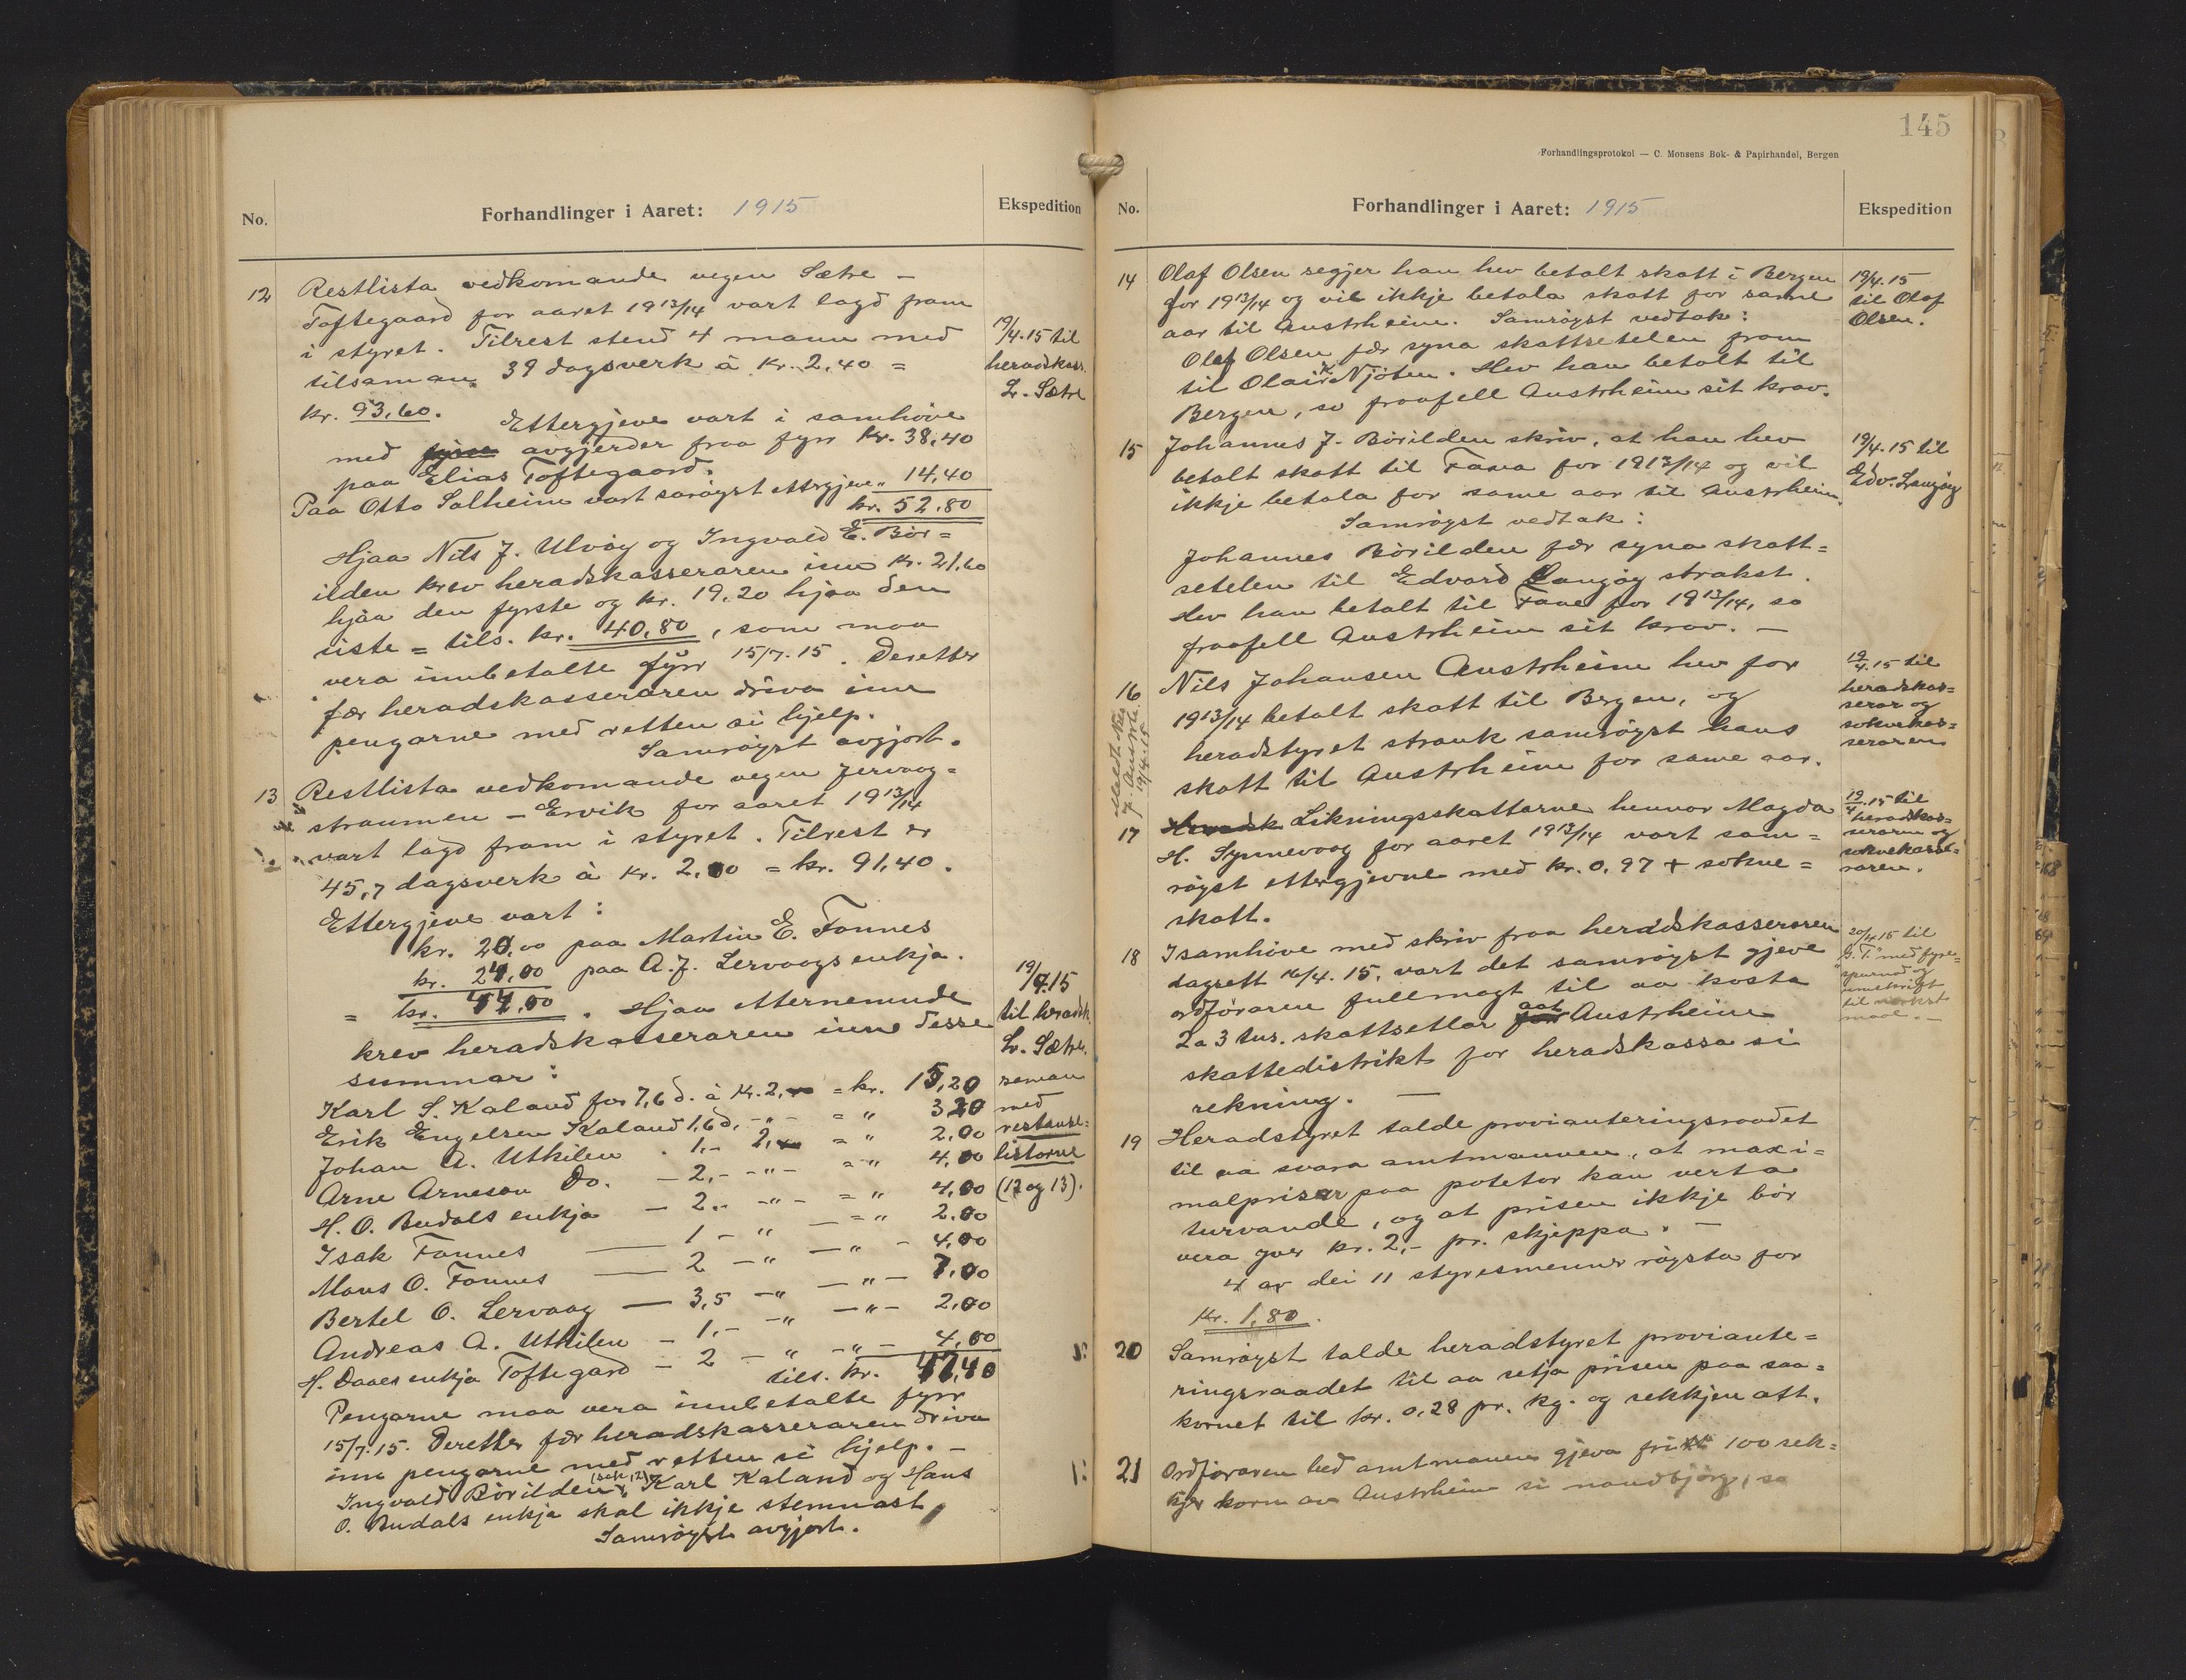 No.
Forhandlinger i Aaret: 1915
Ekspedition
12 Restlista vedkomande vegen Sætre -
Toftegaard for aaret 1913/14 vart lagd fram
i styret. Tilrest stend 4 mann med
tilsaman 39 dagsverk à kr. 2,40 =
kr. 93,60.
19/4.15 til
heradskass.
L. Sætre
Ettergjeve vart i samhøve
med fyrre avgjerder fraa fyrr kr. 38,40
paa Elias Toftegaard.
Paa Otto Solheim vart samrøyst ettergjeve " 14,40
kr. 52,80
Hjaa Nils J. Ulvøy og Ingvald E. Bør=
ilden krev heradskasseraren inn kr. 21,60
hjaa den fyrste og kr. 19,20 hjaa den
siste = tils. kr. 40,80, som maa
vera innbetalte fyrr 15/7.15. Deretter
fær heradskasseraren driva inn
pengarne med retten si hjelp.
Samrøyst avgjort.
13 Restlista vedkomande vegen Jervaag=
straumen - Ervik for aaret 1913/14
vart lagd fram i styret. Tilrest er
45,7 dagsverk à kr. 2,00 = kr. 91,40.
Ettergjeve vart:
kr. 20,00 paa Martin E. Fonnes
kr. 24,00 paa A. J. Lervaags enkja.
= kr. 44,00. Hjaa etternemnde
krev heradskasseraren inn desse
summar:
19/4.15
til heradsk.
L. Sætre.
saman
med
restanse=
listorne
(12 og 13).
Karl S. Kaland for 7,6 d. à kr. 2,- = kr. 15,20
Erik Engelsen Kaland 1,6 d. -"- = " 3,20
Johan A. Utkilen . 1,- 2,- = " 2,00
Arne Arneson Do. - 2,- -"- = " 4,00
H. O. Budals enkja - 2,- -"- = " 4,00
Isak Fonnes - 1 - " - = " 2,00
Mons O. Fonnes - 2 - " - " - 4,00
Bertel O. Lervaag - 3,5 - " - " - 7,00
Andreas A. Utkilen - 1,- - " - " - 2,00
H. Daaes enkja Toftegard - 2 - " - " - 4,00
tils. kr. 47,40
Pengarne maa vera innbetalte fyrr
15/7.15. Deretter fær heradskasseraren driva
inn pengarne med retten si hjelp. -
Ingvald Børilden (sak 12), Karl Kaland og Hans
O. Budals enkja skal ikkje stemnast.
Samrøyst avgjort.
145
Forhandlingsprotokol — C. Monsens Bok- & Papirhandel, Bergen
No.
Forhandlinger i Aaret: 1915
Ekspedition
14 Olaf Olsen segjer han hev betalt skatt i Bergen
for 1913/14 og vil ikkje betala skatt for same
aar til Austrheim. Samrøyst vedtak:
Olaf Olsen fær syna skattsetelen fram
til Olai K. Njøten. Hev han betalt til
Bergen, so fraafell Austrheim sit krav.
19/4.15
til Olaf
Olsen.
15 Johannes J. Børilden skriv, at han hev
betalt skatt til Fana for 1913/14 og vil
ikkje betala for same aar til Austrheim.
Samrøyst vedtak:
Johannes Børilden fær syna skatt=
setelen til Edvard Langøy strakst.
Hev han betalt til Fana for 1913/14, so
fraafell Austrheim sit krav. -
19/4.15 til
Edv. Langøy
16 Nils Johansen Austrheim hev for
1913/14 betalt skatt til Bergen, og
heradstyret strauk samrøyst hans
skatt til Austrheim for same aar.
Meldt Nils
J. Austrh.
19/4.15
19/4.15 til
heradskas=
serar og
soknekas=
seraren
17 Heradsk Likningsskattarne hennar Magda
H. Synnevaag for aaret 1913/14 vart sam=
røyst ettergjevne med kr. 0,97 + sokne=
skatt.
19/4.15 til
heradskas=
seraren og
soknekasse=
raren.
18 I samhøve med skriv fraa heradskasseraren
dagsett 16/4.15, vart det samrøyst gjeve
ordføraren fullmagt til aa kosta
2 a 3 tus. skattsetlar for aat Austrheim
skattedistrikt for heradskassa si
rekning. -
20/4.15 til
"G. T." med fyre=
spurnad og
umskrift
til norkst
maal. -
19 Heradstyret talde provianteringsraadet
til aa svara amtmannen, at maxi=
malprisar paa poteter kan verta
turvande, og at prisen ikkje bør
vera yver kr. 2,- pr. skjeppa. -
4 av dei 11 styresmenner røysta for
kr. 1,80.
20 Samrøyst talde heradstyret proviante=
ringsraadet til aa setja prisen paa saa=
kornet til kr. 0,28 pr. kg. og sekkjen att.
21 Ordføraren bed amtmannen gjeva fritt 100 sek=
kjer korn av Austrheim si naudbjørg, so